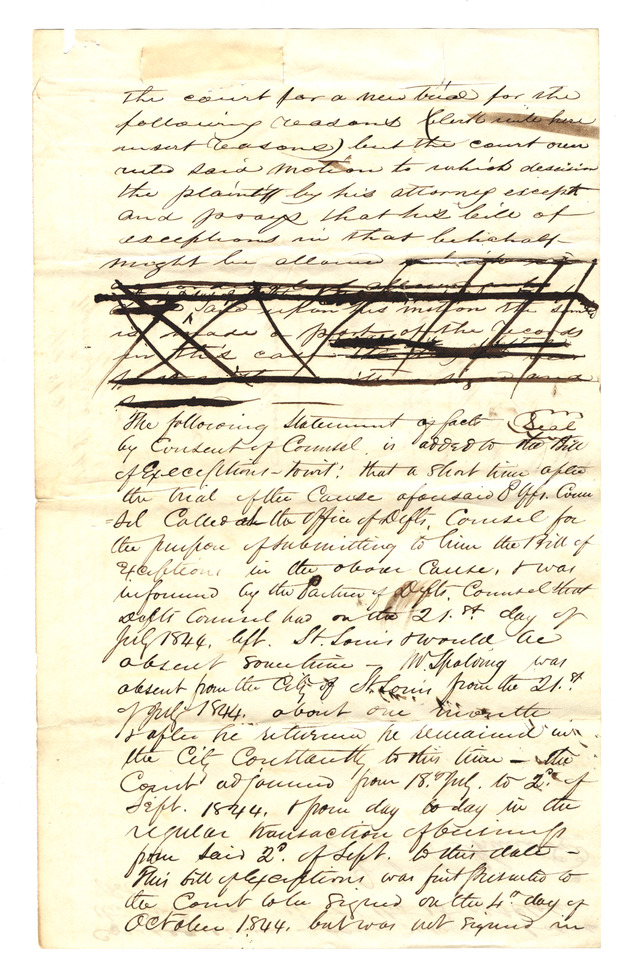 the court for a new trial for the
following reasons (Clerk will here
insert reasons) but the court over
ruled said motion to which decision
the plaintiff by his attorney except
and prays that his bill of
exceptions in that behalf
might be allowed
and upon his motion the same
is made a part of the records
in this cause
and
The following statement of facts (Seal
by Consent of Counsel is added to the Bill
of Exceptions - towit: that a short time after
the trial of the Cause aforesaid Plffs. Coun
-sel Called at the office of Defts. Counsel for
the purpose of submitting to him the Bill of
Exceptions in the above cause, & was
informed by the Partner of Defts. Counsel that
Defts Counsel had on the 21.st day of
July 1844. left. St. Louis & would be
absent sometime - Mr. Spalding was
absent from the City of St. Louis from the 21.st
of July 1844. about one month
& after he returned he remained in
the City Constantly to this time - the
Court adjourned from 18.th July. to 2d of
Sept. 1844. & from day to day in the
regular transaction of business
from said 2d. of Sept. to this date -
This bill of exceptions was first presented to
the Court to be signed on the 4th day of
October 1844. but was not signed in